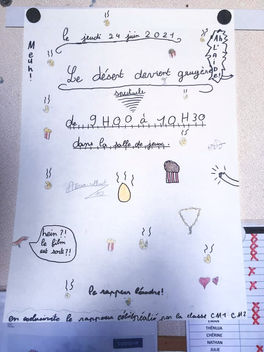 le jeudi 24 juin 2021
Meuh!
Ah
L'AIDE
Le désert devient gruyère!
spectacle
de 9H00 à 10H30
dans la salle de jeux.
hein ?!
le film
est sorti ?!
le rappeur
en exclusivité le rappeur sur la classe CM1 CM2
THÉNUJA
CHÉRINE
NATHAN
JULIE